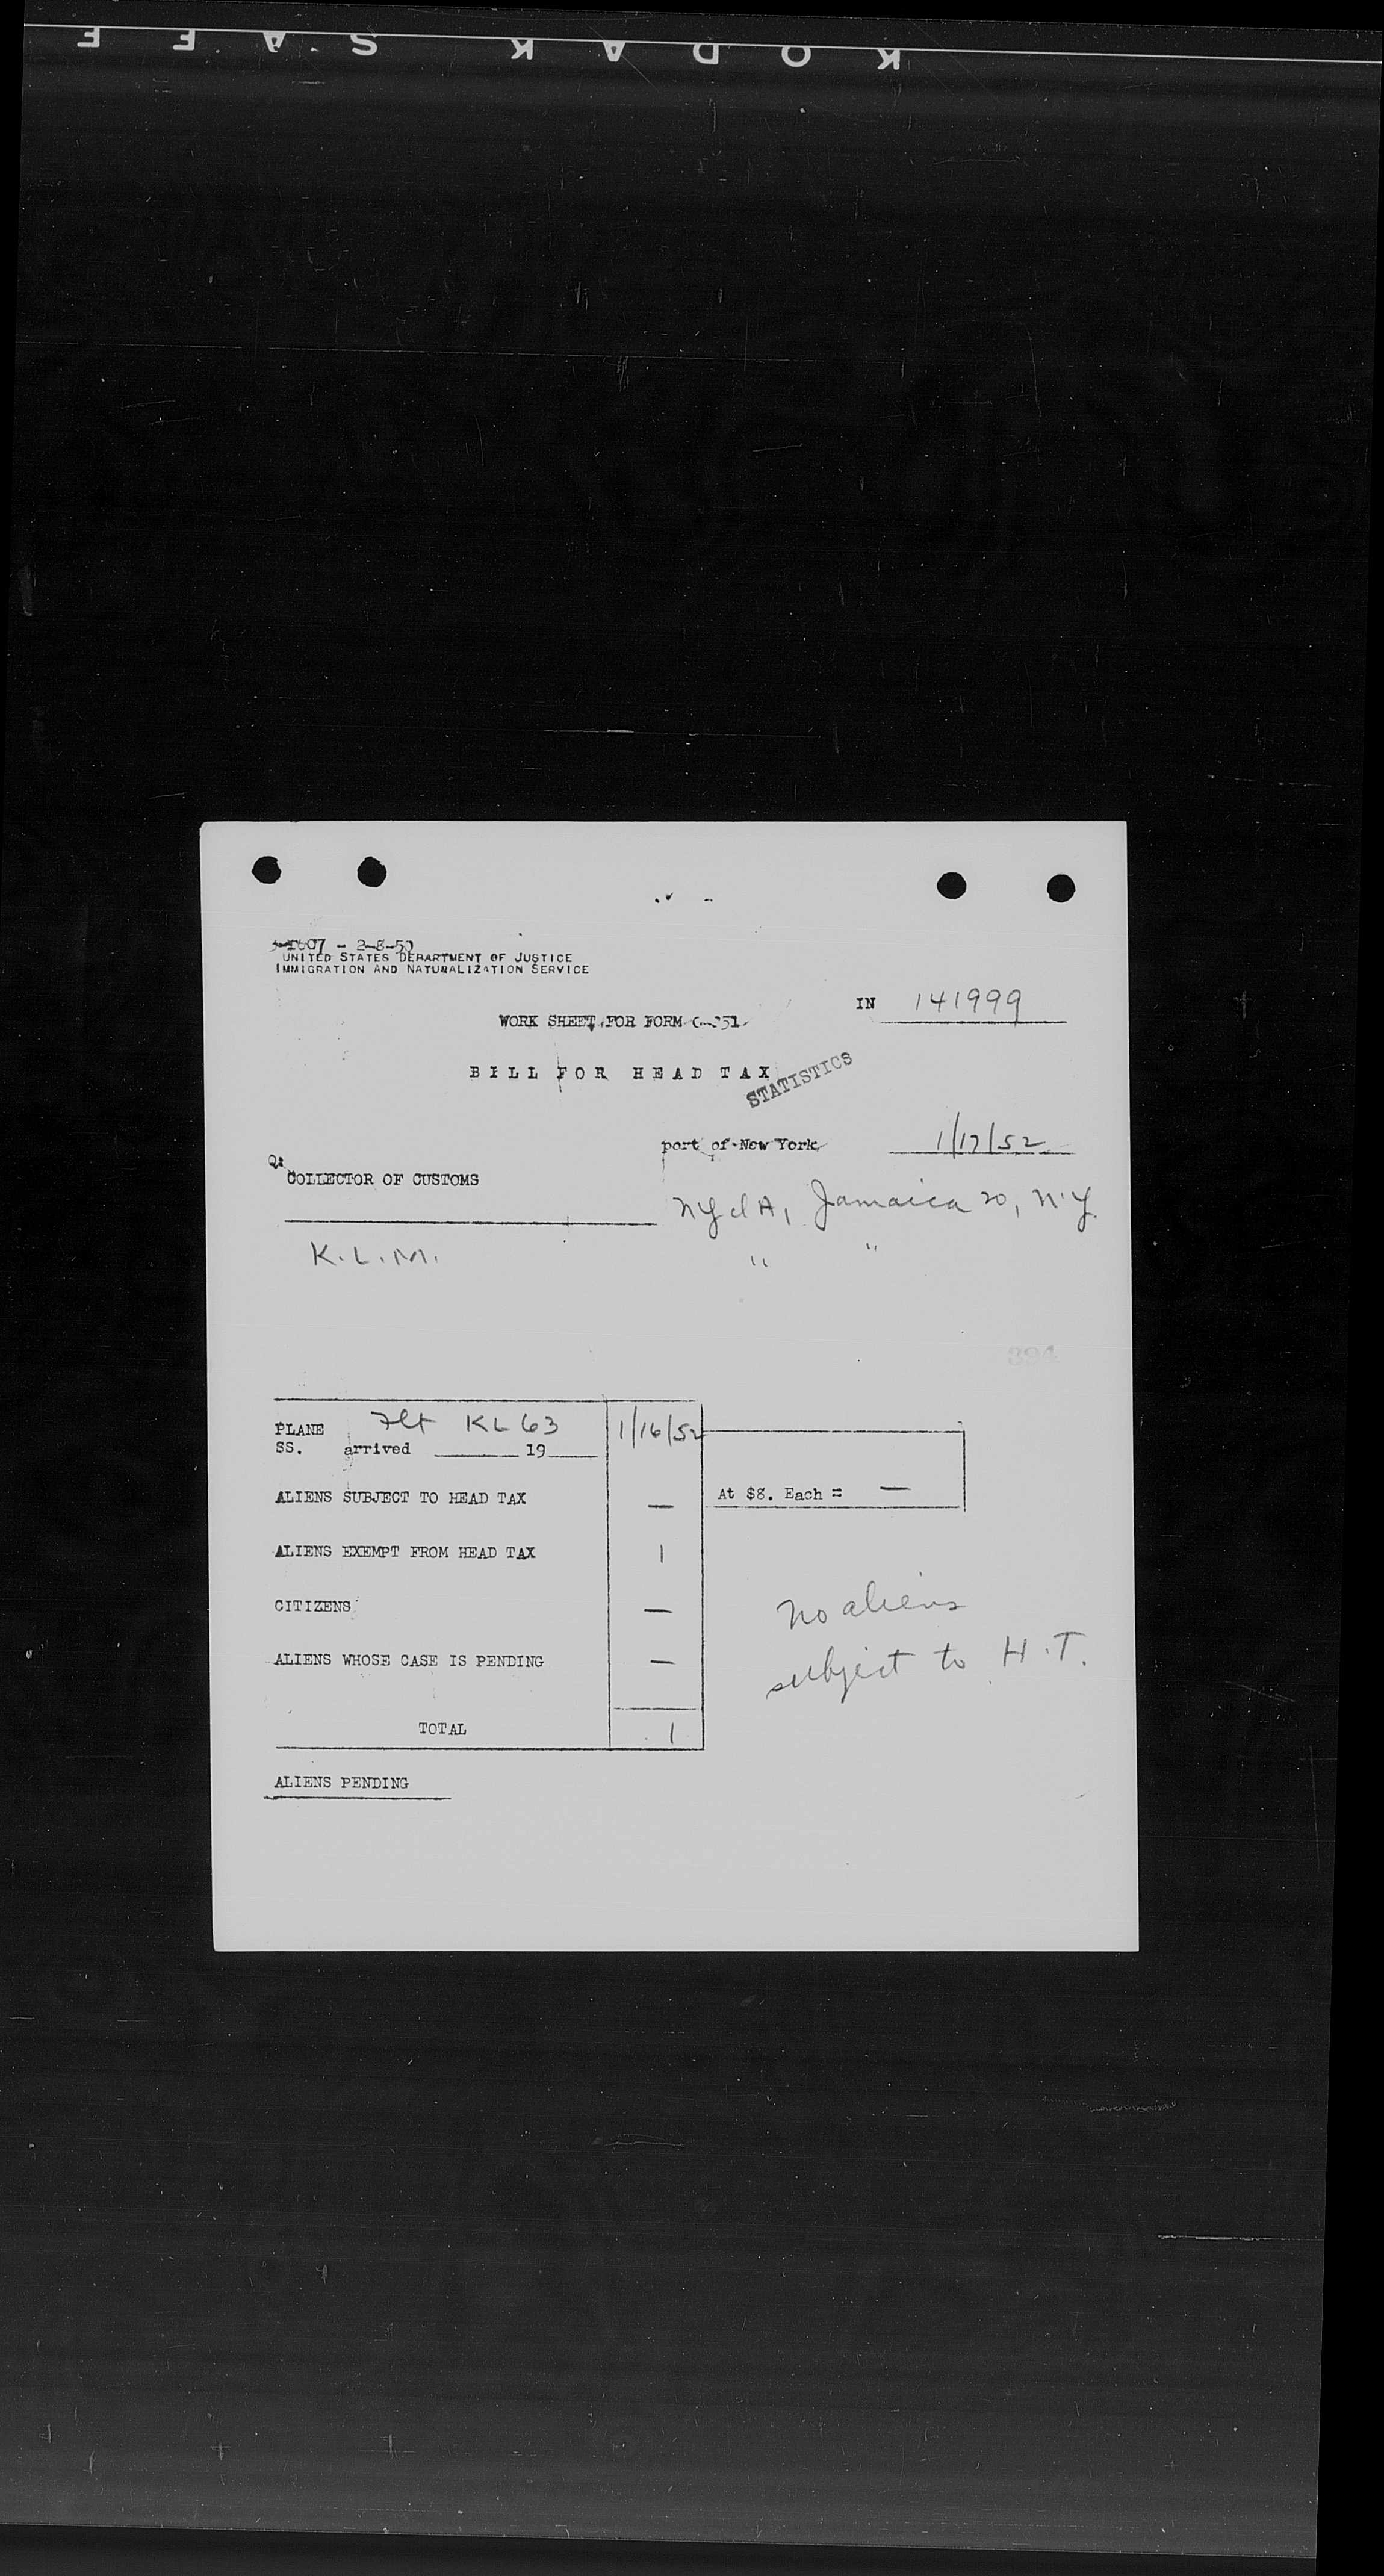 KODAK SAFE
- 2-8-50
UNITED STATES DEPARTMENT OF JUSTICE
IMMIGRATION AND NATURALIZATION SERVICE
IN 141999
WORK SHEET FOR FORM
BILL FOR HEAD TAX
STATISTICS
port of New York 1/17/52
COLLECTOR OF CUSTOMS
Jamaica 20, N.Y.
K.L.M. " "
394
PLANE Flt KL 63 1/16/52
SS. arrived 19
ALIENS SUBJECT TO HEAD TAX — At $8. Each = —
ALIENS EXEMPT FROM HEAD TAX 1
CITIZENS —
No aliens
ALIENS WHOSE CASE IS PENDING —
subject to H.T.
TOTAL 1
ALIENS PENDING